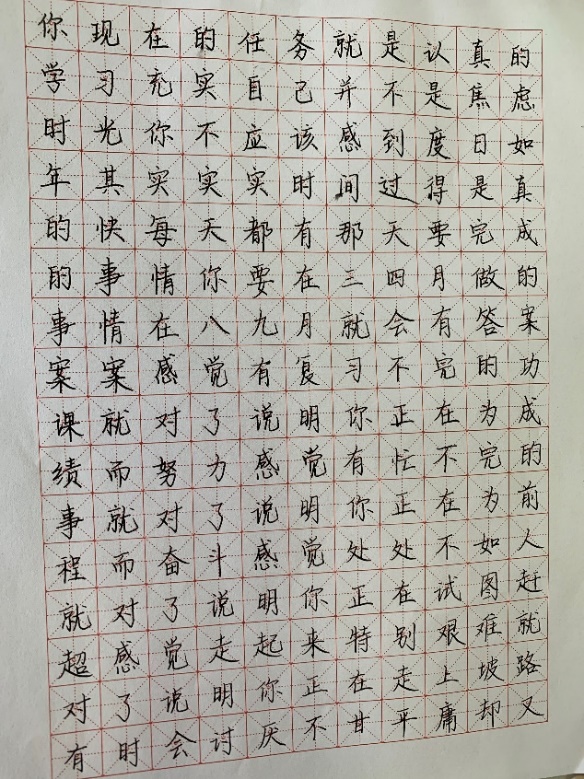 你现在的任务就是认真的
学习充实自己并不是焦虑
时光你不应该感到度日如
年其实实实时间过得是真
的快每天都有那天要完成
的事情你要在三四月做的
事情在八九月就会有答案
案案感觉有复习不完的功
课就对了说明你正在为成
绩而努力感觉有忙不完的
事就对了说明你正在为前
程而奋斗感觉处处不如人
就对了说明你正在试图赶
超感觉走起来特别艰难就
对了说明你正在走上坡路
有时会讨厌不甘平庸却又